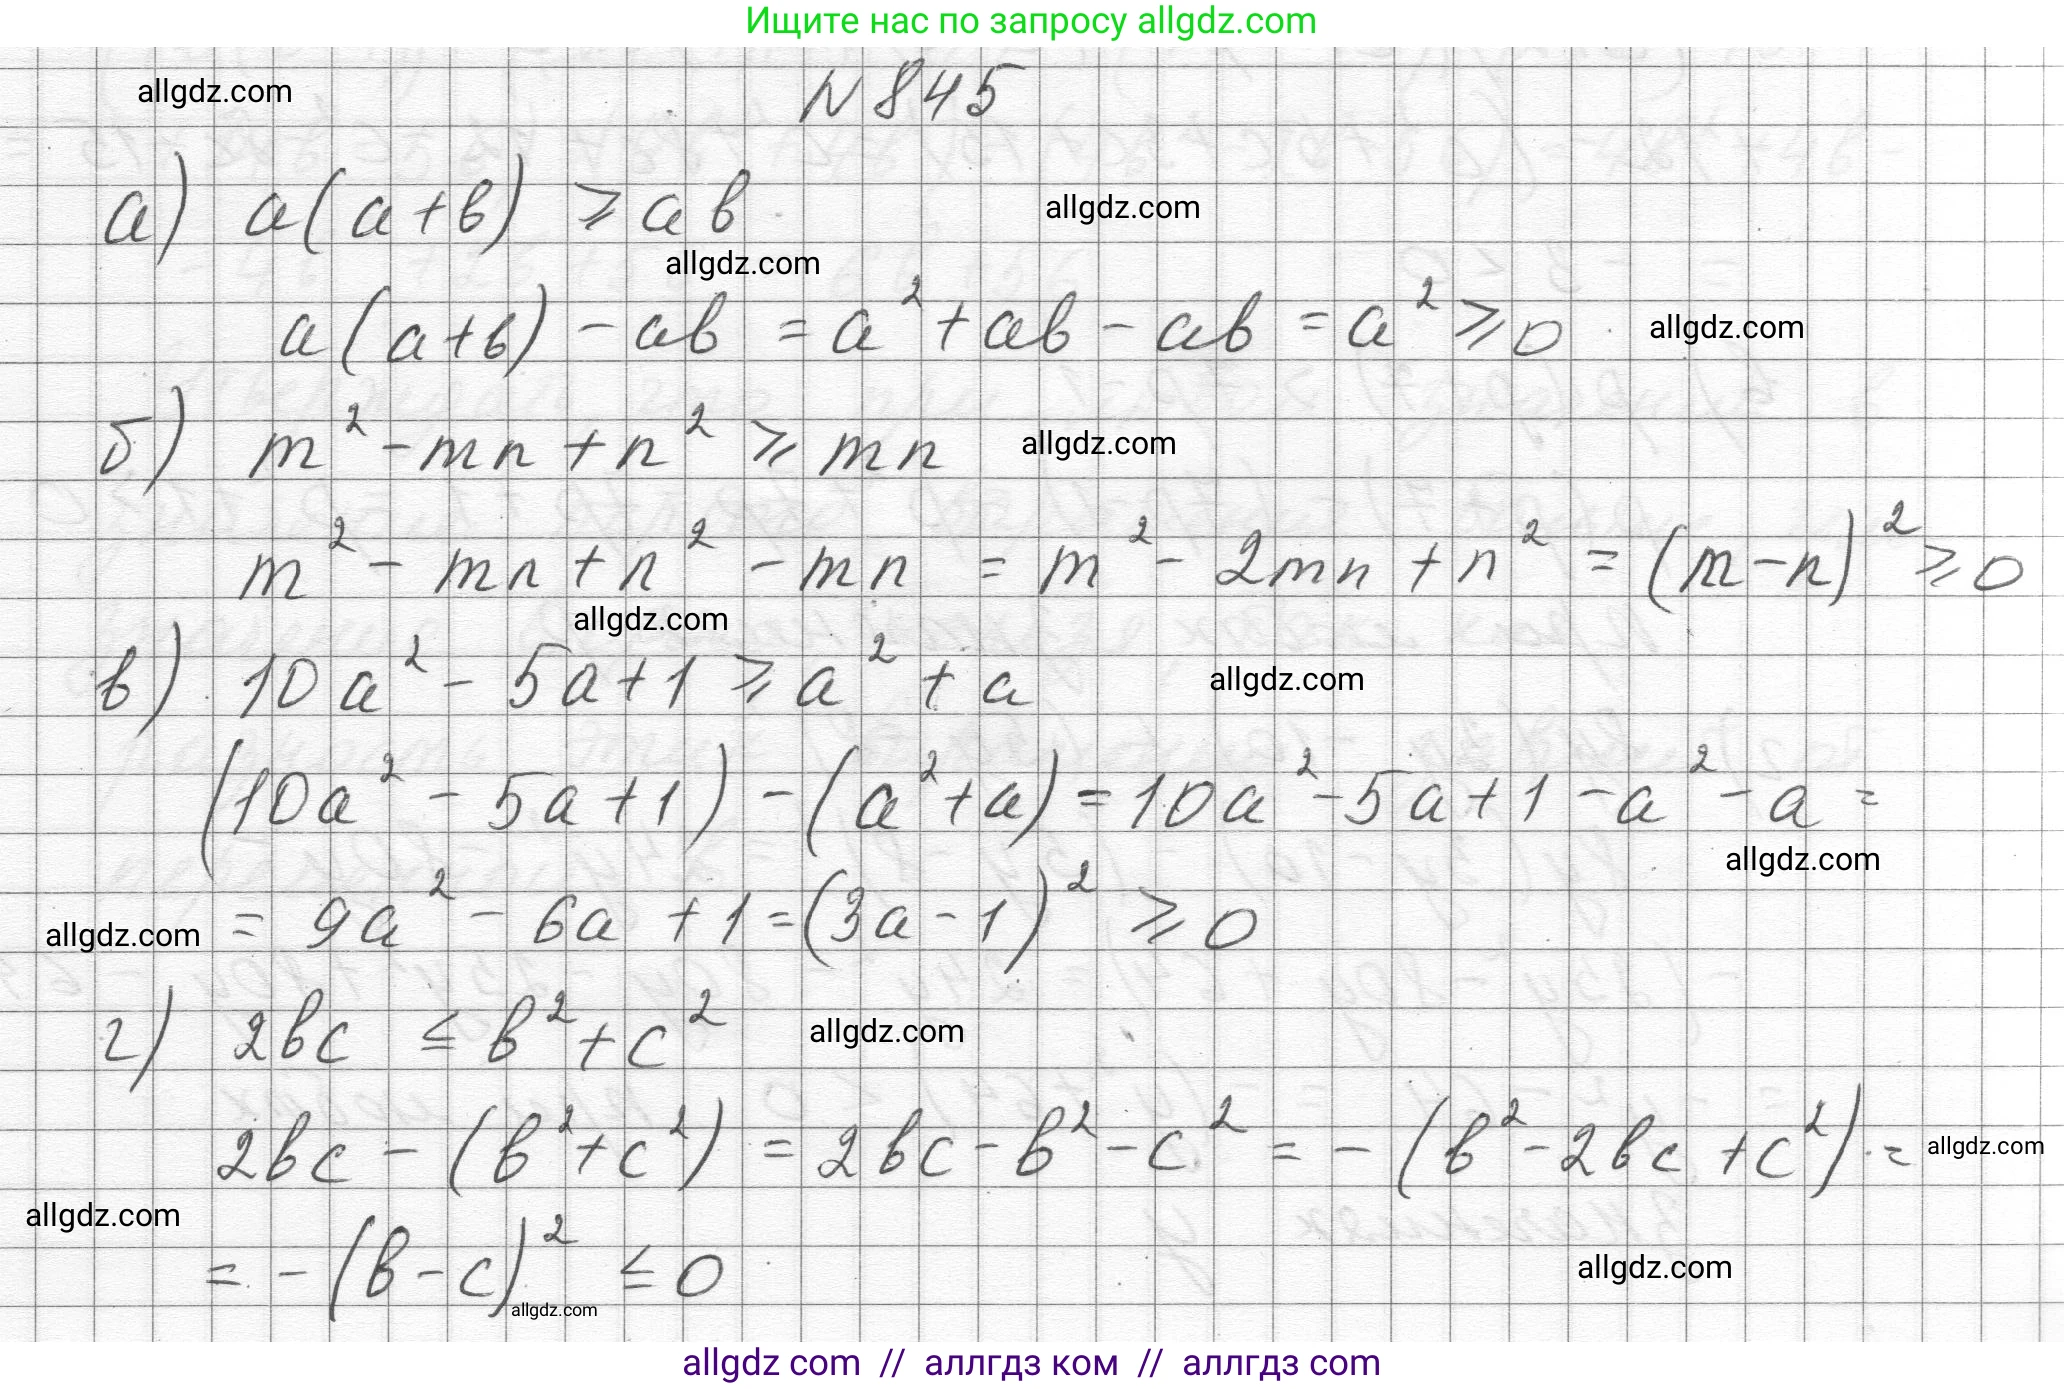 Ищите нас по запросу allgdz.com
allgdz.com
N 845
а) a(a+b) ⩾ ab
allgdz.com
allgdz.com
a(a+b) - ab = a² + ab - ab = a² ⩾ 0
allgdz.com
б) m² - mn + n² ⩾ mn
allgdz.com
m² - mn + n² - mn = m² - 2mn + n² = (m-n)² ⩾ 0
allgdz.com
в) 10a² - 5a + 1 ⩾ a² + a
allgdz.com
(10a² - 5a + 1) - (a² + a) = 10a² - 5a + 1 - a² - a =
allgdz.com
allgdz.com
= 9a² - 6a + 1 = (3a - 1)² ⩾ 0
г) 2bc ≤ b² + c²
allgdz.com
2bc - (b² + c²) = 2bc - b² - c² = - (b² - 2bc + c²) =
allgdz.com
allgdz.com
= - (b - c)² ≤ 0
allgdz.com
allgdz.com
allgdz com // аллгдз ком // аллгдз com